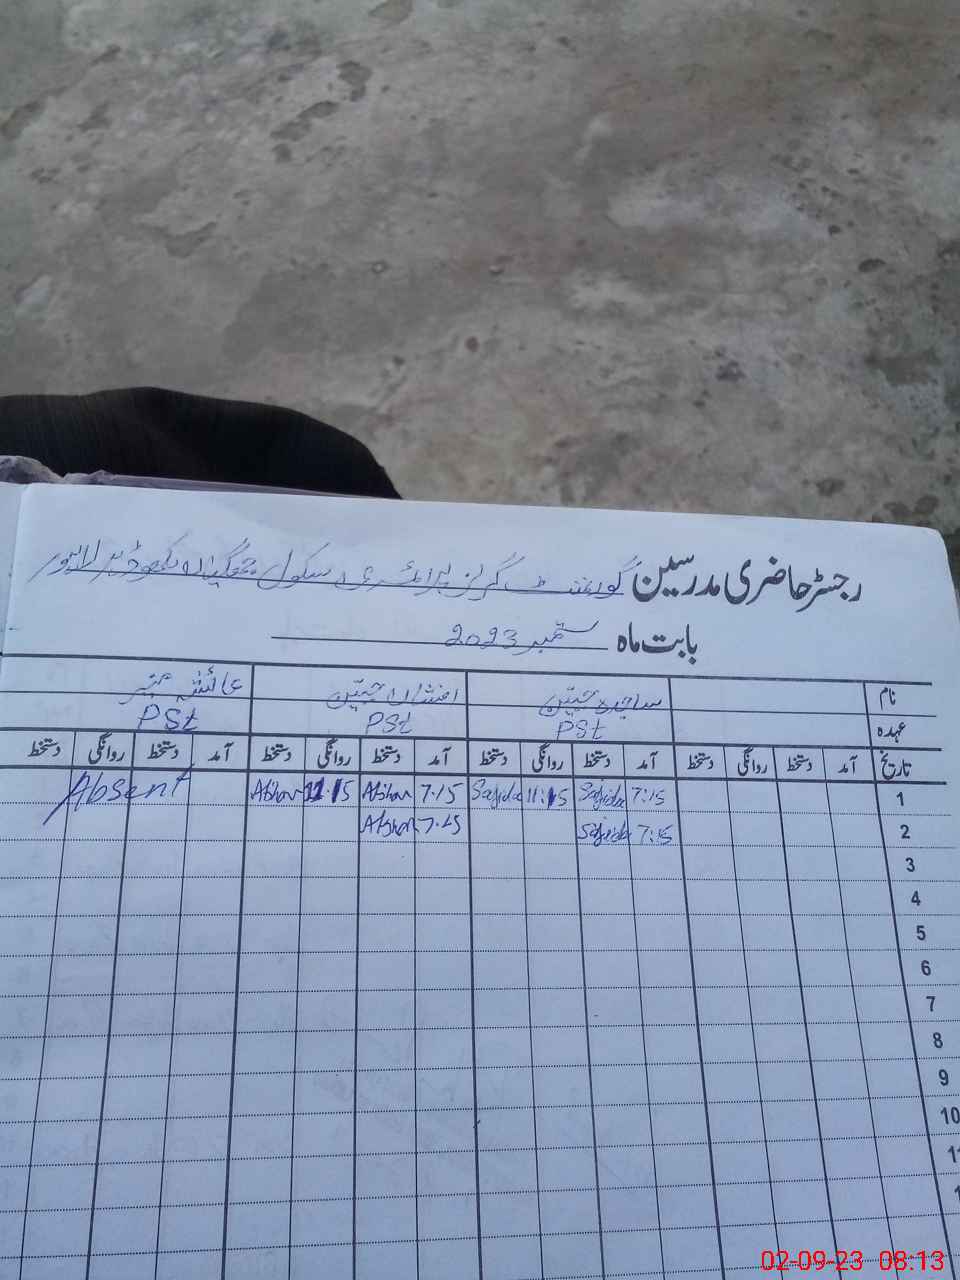 رجسٹر حاضری مدرسین گورنمنٹ گرلز پرائمری سکول جھگیاں لاہور
بابت ماہ ستمبر 2023
نام ساجدہ افشاں عائشہ
عہدہ PSt PSt PSt
تاریخ آمد دستخط روانگی دستخط آمد دستخط روانگی دستخط آمد دستخط روانگی دستخط آمد دستخط روانگی دستخط
1 7:15 Sajida 11:15 Sajida 7:15 Afshan 11:15 Afshan Absent
2 7:15 Sajida 7:15 Afshan
3
4
5
6
7
8
9
10
11
02-09-23 08:13